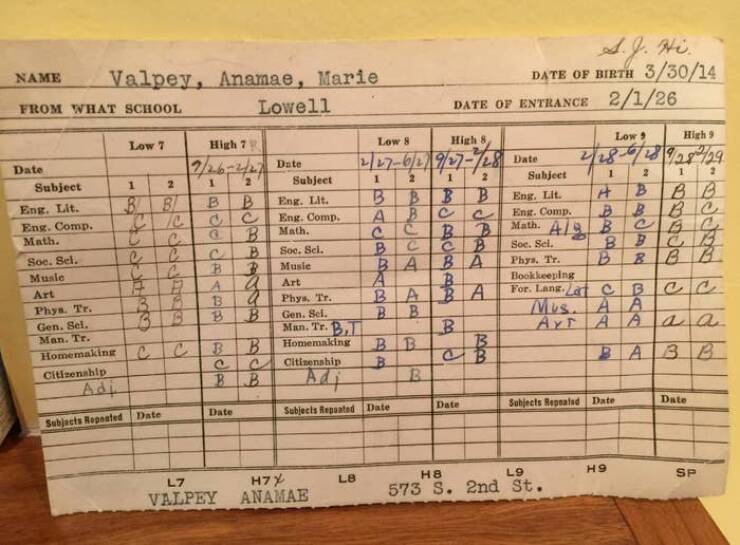 S. J. Hi.
NAME Valpey, Anamae, Marie DATE OF BIRTH 3/30/14
FROM WHAT SCHOOL Lowell DATE OF ENTRANCE 2/1/26
Low 7 High 7 Low 8 High 8 Low 9 High 9
Date 9/26-2/27 Date 2/27-6/27 9/27-2/28 Date 2/28-6/28 9/28 2/29
Subject 1 2 1 2 Subject 1 2 1 2 Subject 1 2 1 2
Eng. Lit. B B B B Eng. Lit. B B B B Eng. Lit. A B B B
Eng. Comp. C C C C Eng. Comp. A B C C Eng. Comp. B B B C
Math. C C C B Math. C C B B Math. Alg B C B C
Soc. Sci. C C C B Soc. Sci. B C C B Soc. Sci. B B C B
Music C C B B Music B A B A Phys. Tr. B B B B
Art A a Art A B Bookkeeping
Phys. Tr. B B B a Phys. Tr. B A B A For. Lang. Lat C B C C
Gen. Sci. B B B B Gen. Sci. B B Mus. A A
Man. Tr. Man. Tr. B,T B Art A A a a
Homemaking C C B B Homemaking B B B
Citizenship C C Citizenship B C B B A B B
Adj B B Adj B
Subjects Repeated Date Date Subjects Repeated Date Date Subjects Repeated Date Date
L7 H7 L8 H8 L9 H9 SP
VALPEY ANAMAE 573 S. 2nd St.